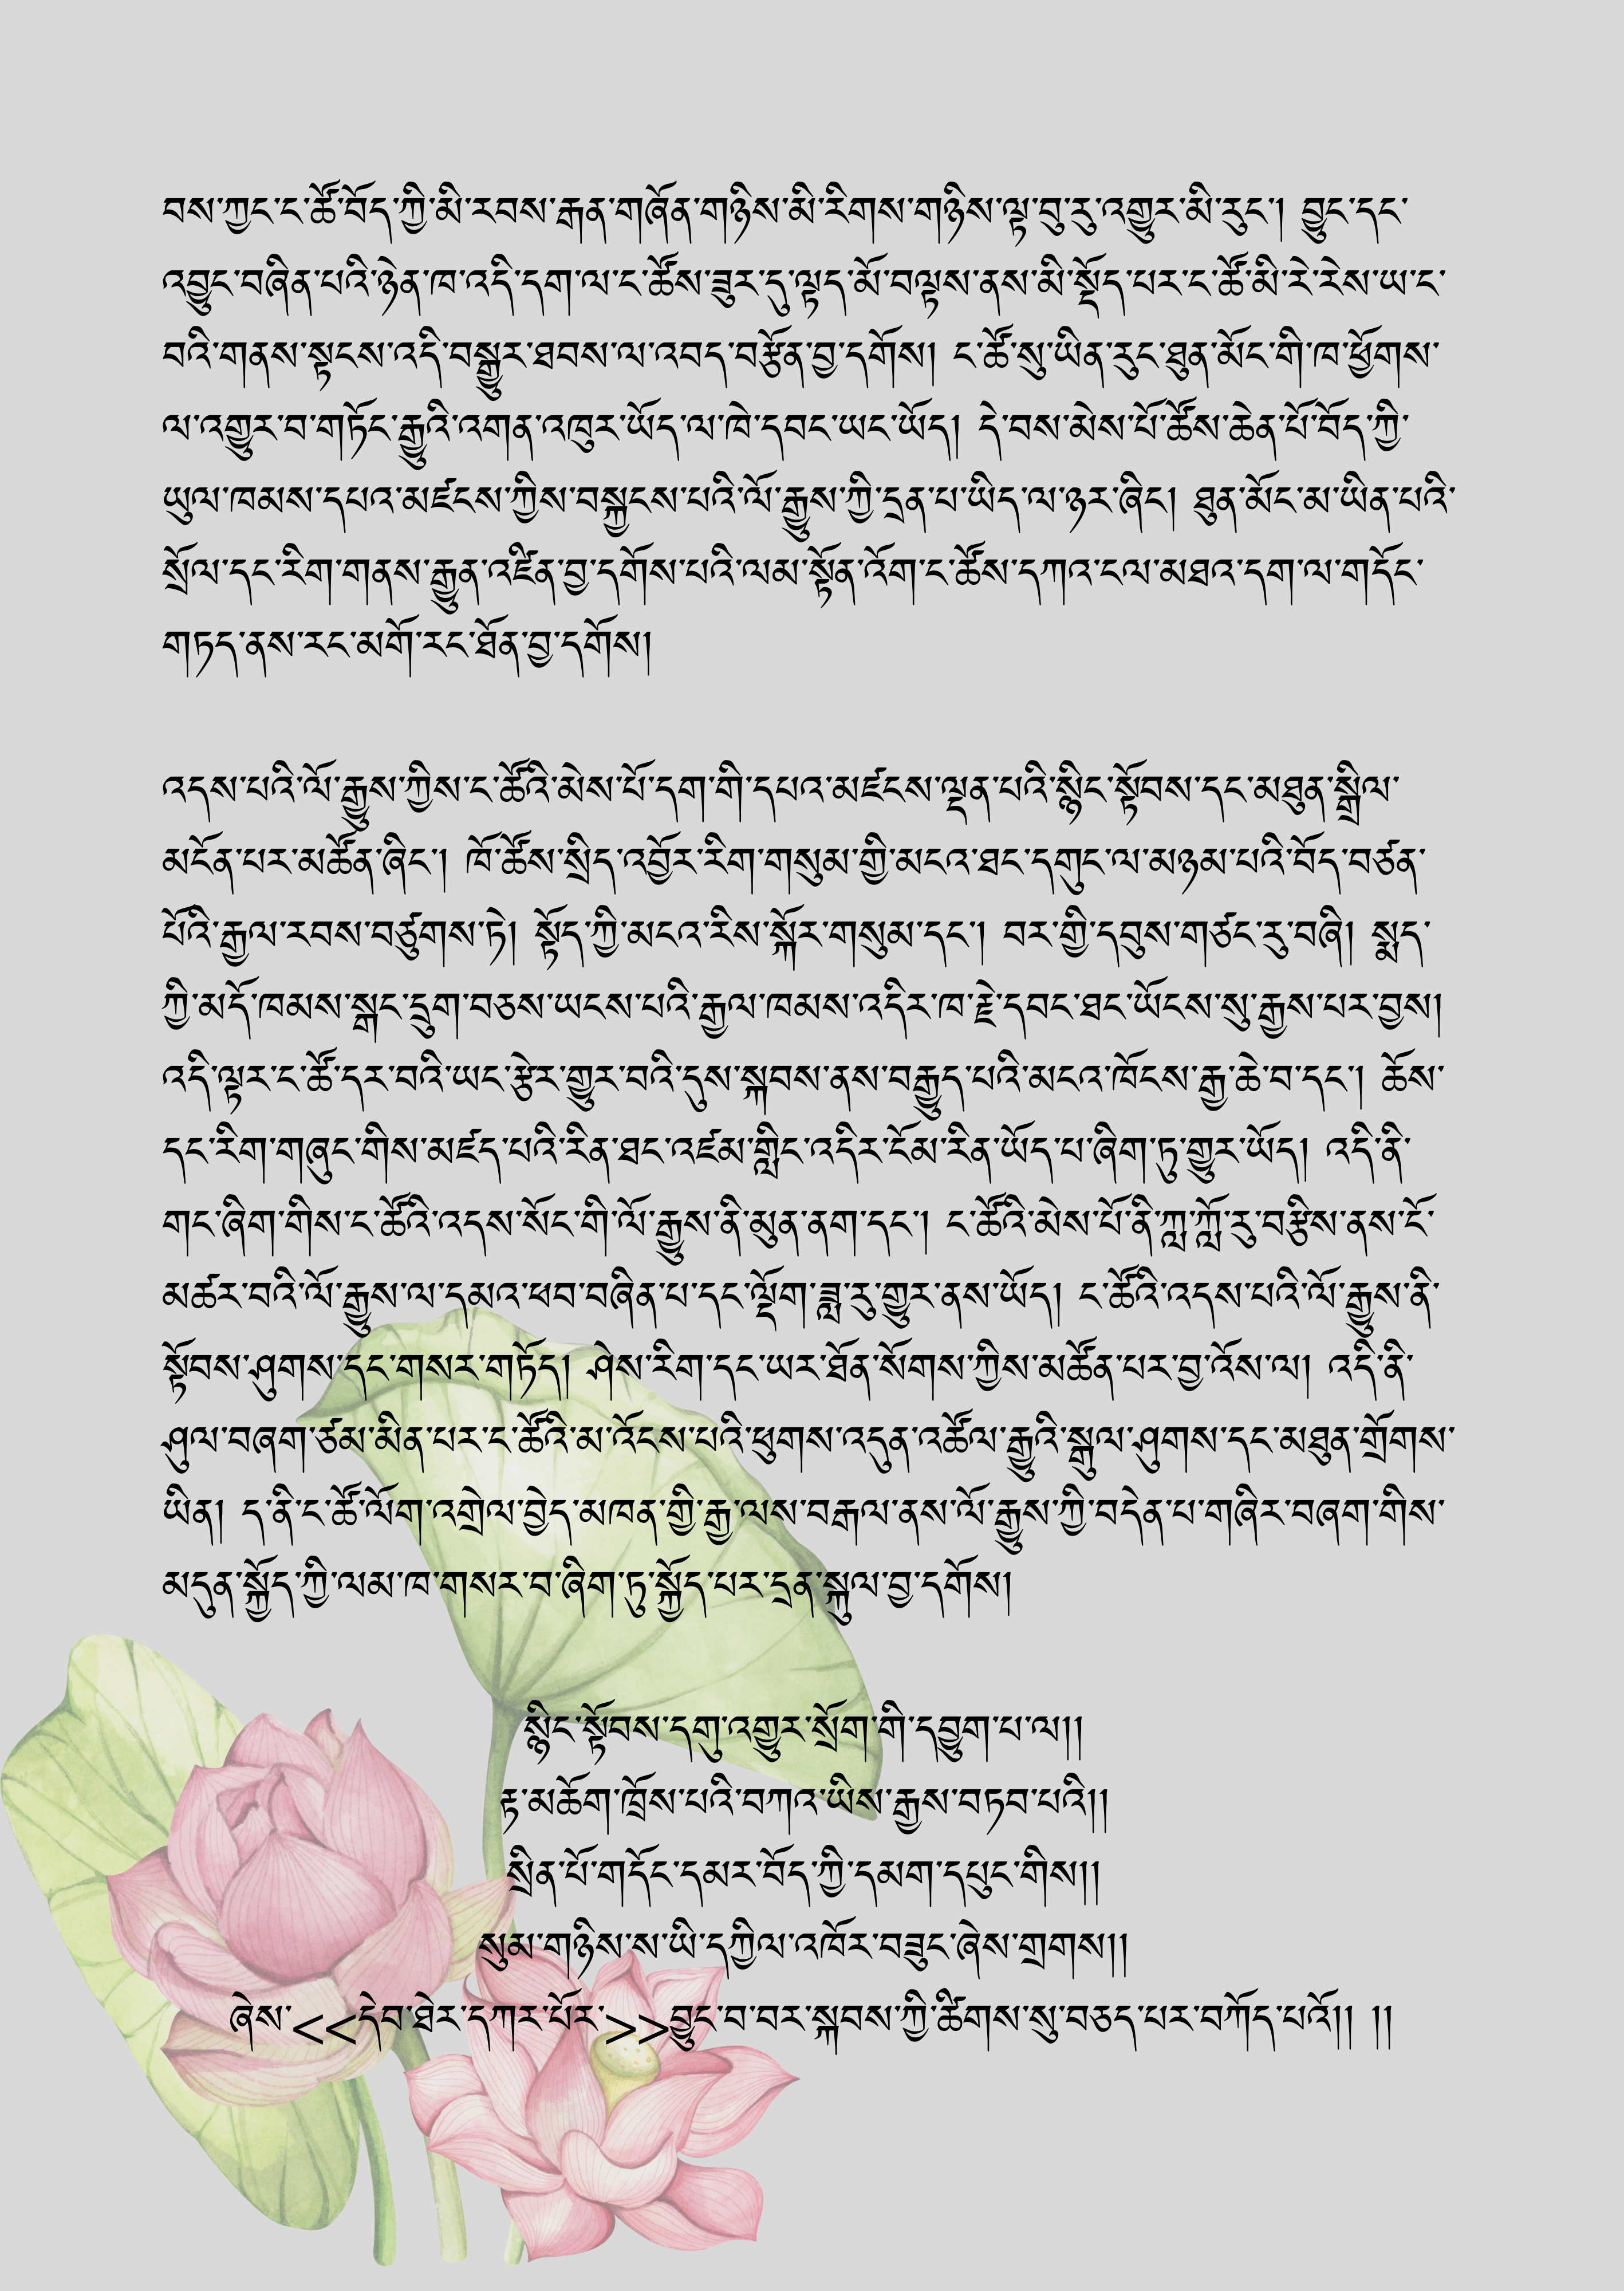 བས་ཀྱང་ང་ཚོ་བོད་ཀྱི་མི་རབས་རྒན་གཞོན་གཉིས་མི་རིགས་གཉིས་ལྟ་བུ་རུ་འགྱུར་མི་རུང་། བྱུང་དང་
འབྱུང་བཞིན་པའི་ཉེན་ཁ་འདི་དག་ལ་ང་ཚོས་ཟུར་དུ་ལྟད་མོ་བལྟས་ནས་མི་སྡོད་པར་ང་ཚོ་མི་རེ་རེས་ཡ་ང་
བའི་གནས་སྟངས་འདི་བསྒྱུར་ཐབས་ལ་འབད་བརྩོན་བྱ་དགོས། ང་ཚོ་སུ་ཡིན་རུང་ཐུན་མོང་གི་ཁ་ཕྱོགས་
ལ་འགྱུར་བ་གཏོང་རྒྱུའི་འགན་འཁུར་ཡོད་ལ་ཁེ་དབང་ཡང་ཡོད། དེ་བས་མེས་པོ་ཚོས་ཆེན་པོ་བོད་ཀྱི་
ཡུལ་ཁམས་དཔའ་མཛངས་ཀྱིས་བསྐྱངས་པའི་ལོ་རྒྱུས་ཀྱི་དྲན་པ་ཡིད་ལ་ཉར་ཞིང་། ཐུན་མོང་མ་ཡིན་པའི་
སྲོལ་དང་རིག་གནས་རྒྱུན་འཛིན་བྱ་དགོས་པའི་ལམ་སྟོན་འོག་ང་ཚོས་དཀའ་ངལ་མཐའ་དག་ལ་གདོང་
གཏད་ནས་རང་མགོ་རང་ཐོན་བྱ་དགོས།
འདས་པའི་ལོ་རྒྱུས་ཀྱིས་ང་ཚོའི་མེས་པོ་དག་གི་དཔའ་མཛངས་ལྡན་པའི་སྙིང་སྟོབས་དང་མཐུན་སྒྲིལ་
མངོན་པར་མཚོན་ཞིང་། ཁོ་ཚོས་སྲིད་འབྱོར་རིག་གསུམ་གྱི་མངའ་ཐང་དགུང་ལ་མཉམ་པའི་བོད་བཙན་
པོའི་རྒྱལ་རབས་བཙུགས་ཏེ། སྟོད་ཀྱི་མངའ་རིས་སྐོར་གསུམ་དང་། བར་གྱི་དབུས་གཙང་རུ་བཞི། སྨད་
ཀྱི་མདོ་ཁམས་སྒང་དྲུག་བཅས་ཡངས་པའི་རྒྱལ་ཁམས་འདིར་ཁ་རྗེ་དབང་ཐང་ཡོངས་སུ་རྒྱས་པར་བྱས།
འདི་ལྟར་ང་ཚོ་དར་བའི་ཡང་རྩེར་གྱུར་བའི་དུས་སྐབས་ནས་བརྒྱུད་པའི་མངའ་ཁོངས་རྒྱ་ཆེ་བ་དང་། ཆོས་
དང་རིག་གཞུང་གིས་མཛད་པའི་རིན་ཐང་འཛམ་གླིང་འདིར་ངོམ་རིན་ཡོད་པ་ཞིག་ཏུ་གྱུར་ཡོད། འདི་ནི་
གང་ཞིག་གིས་ང་ཚོའི་འདས་སོང་གི་ལོ་རྒྱུས་ནི་མུན་ནག་དང་། ང་ཚོའི་མེས་པོ་ནི་ཀླ་ཀློ་རུ་བརྩིས་ནས་ངོ་
མཚར་བའི་ལོ་རྒྱུས་ལ་དམའ་ཕབ་བཞིན་པ་དང་ལྡོག་ཟླ་རུ་གྱུར་ནས་ཡོད། ང་ཚོའི་འདས་པའི་ལོ་རྒྱུས་ནི་
སྟོབས་ཤུགས་དང་གསར་གཏོད། ཤེས་རིག་དང་ཡར་ཐོན་སོགས་ཀྱིས་མཚོན་པར་བྱ་འོས་ལ། འདི་ནི་
ཤུལ་བཞག་ཙམ་མིན་པར་ང་ཚོའི་མ་འོངས་པའི་ཕུགས་འདུན་འཚོལ་རྒྱུའི་སྒུལ་ཤུགས་དང་མཐུན་གྲོགས་
ཡིན། ད་ནི་ང་ཚོ་ལོག་འགྲེལ་བྱེད་མཁན་གྱི་རྒྱ་ལས་བརྒལ་ནས་ལོ་རྒྱུས་ཀྱི་བདེན་པ་གཞིར་བཞག་གིས་
མདུན་སྐྱོད་ཀྱི་ལམ་ཁ་གསར་བ་ཞིག་ཏུ་སྐྱོད་པར་དྲན་སྐུལ་བྱ་དགོས།
སྙིང་སྟོབས་དགུ་འགྱུར་སྲོག་གི་དབྱུག་པ་ལ།།
རྟ་མཆོག་ཁྲོས་པའི་བཀའ་ཡིས་རྒྱས་བཏབ་པའི།།
སྲིན་པོ་གདོང་དམར་བོད་ཀྱི་དམག་དཔུང་གིས།།
སུམ་གཉིས་ས་ཡི་དཀྱིལ་འཁོར་བཟུང་ཞེས་གྲགས།།
ཞེས་<<དེབ་ཐེར་དཀར་པོར་>>བྱུང་བ་བར་སྐབས་ཀྱི་ཚིགས་སུ་བཅད་པར་བཀོད་པའོ།། །།